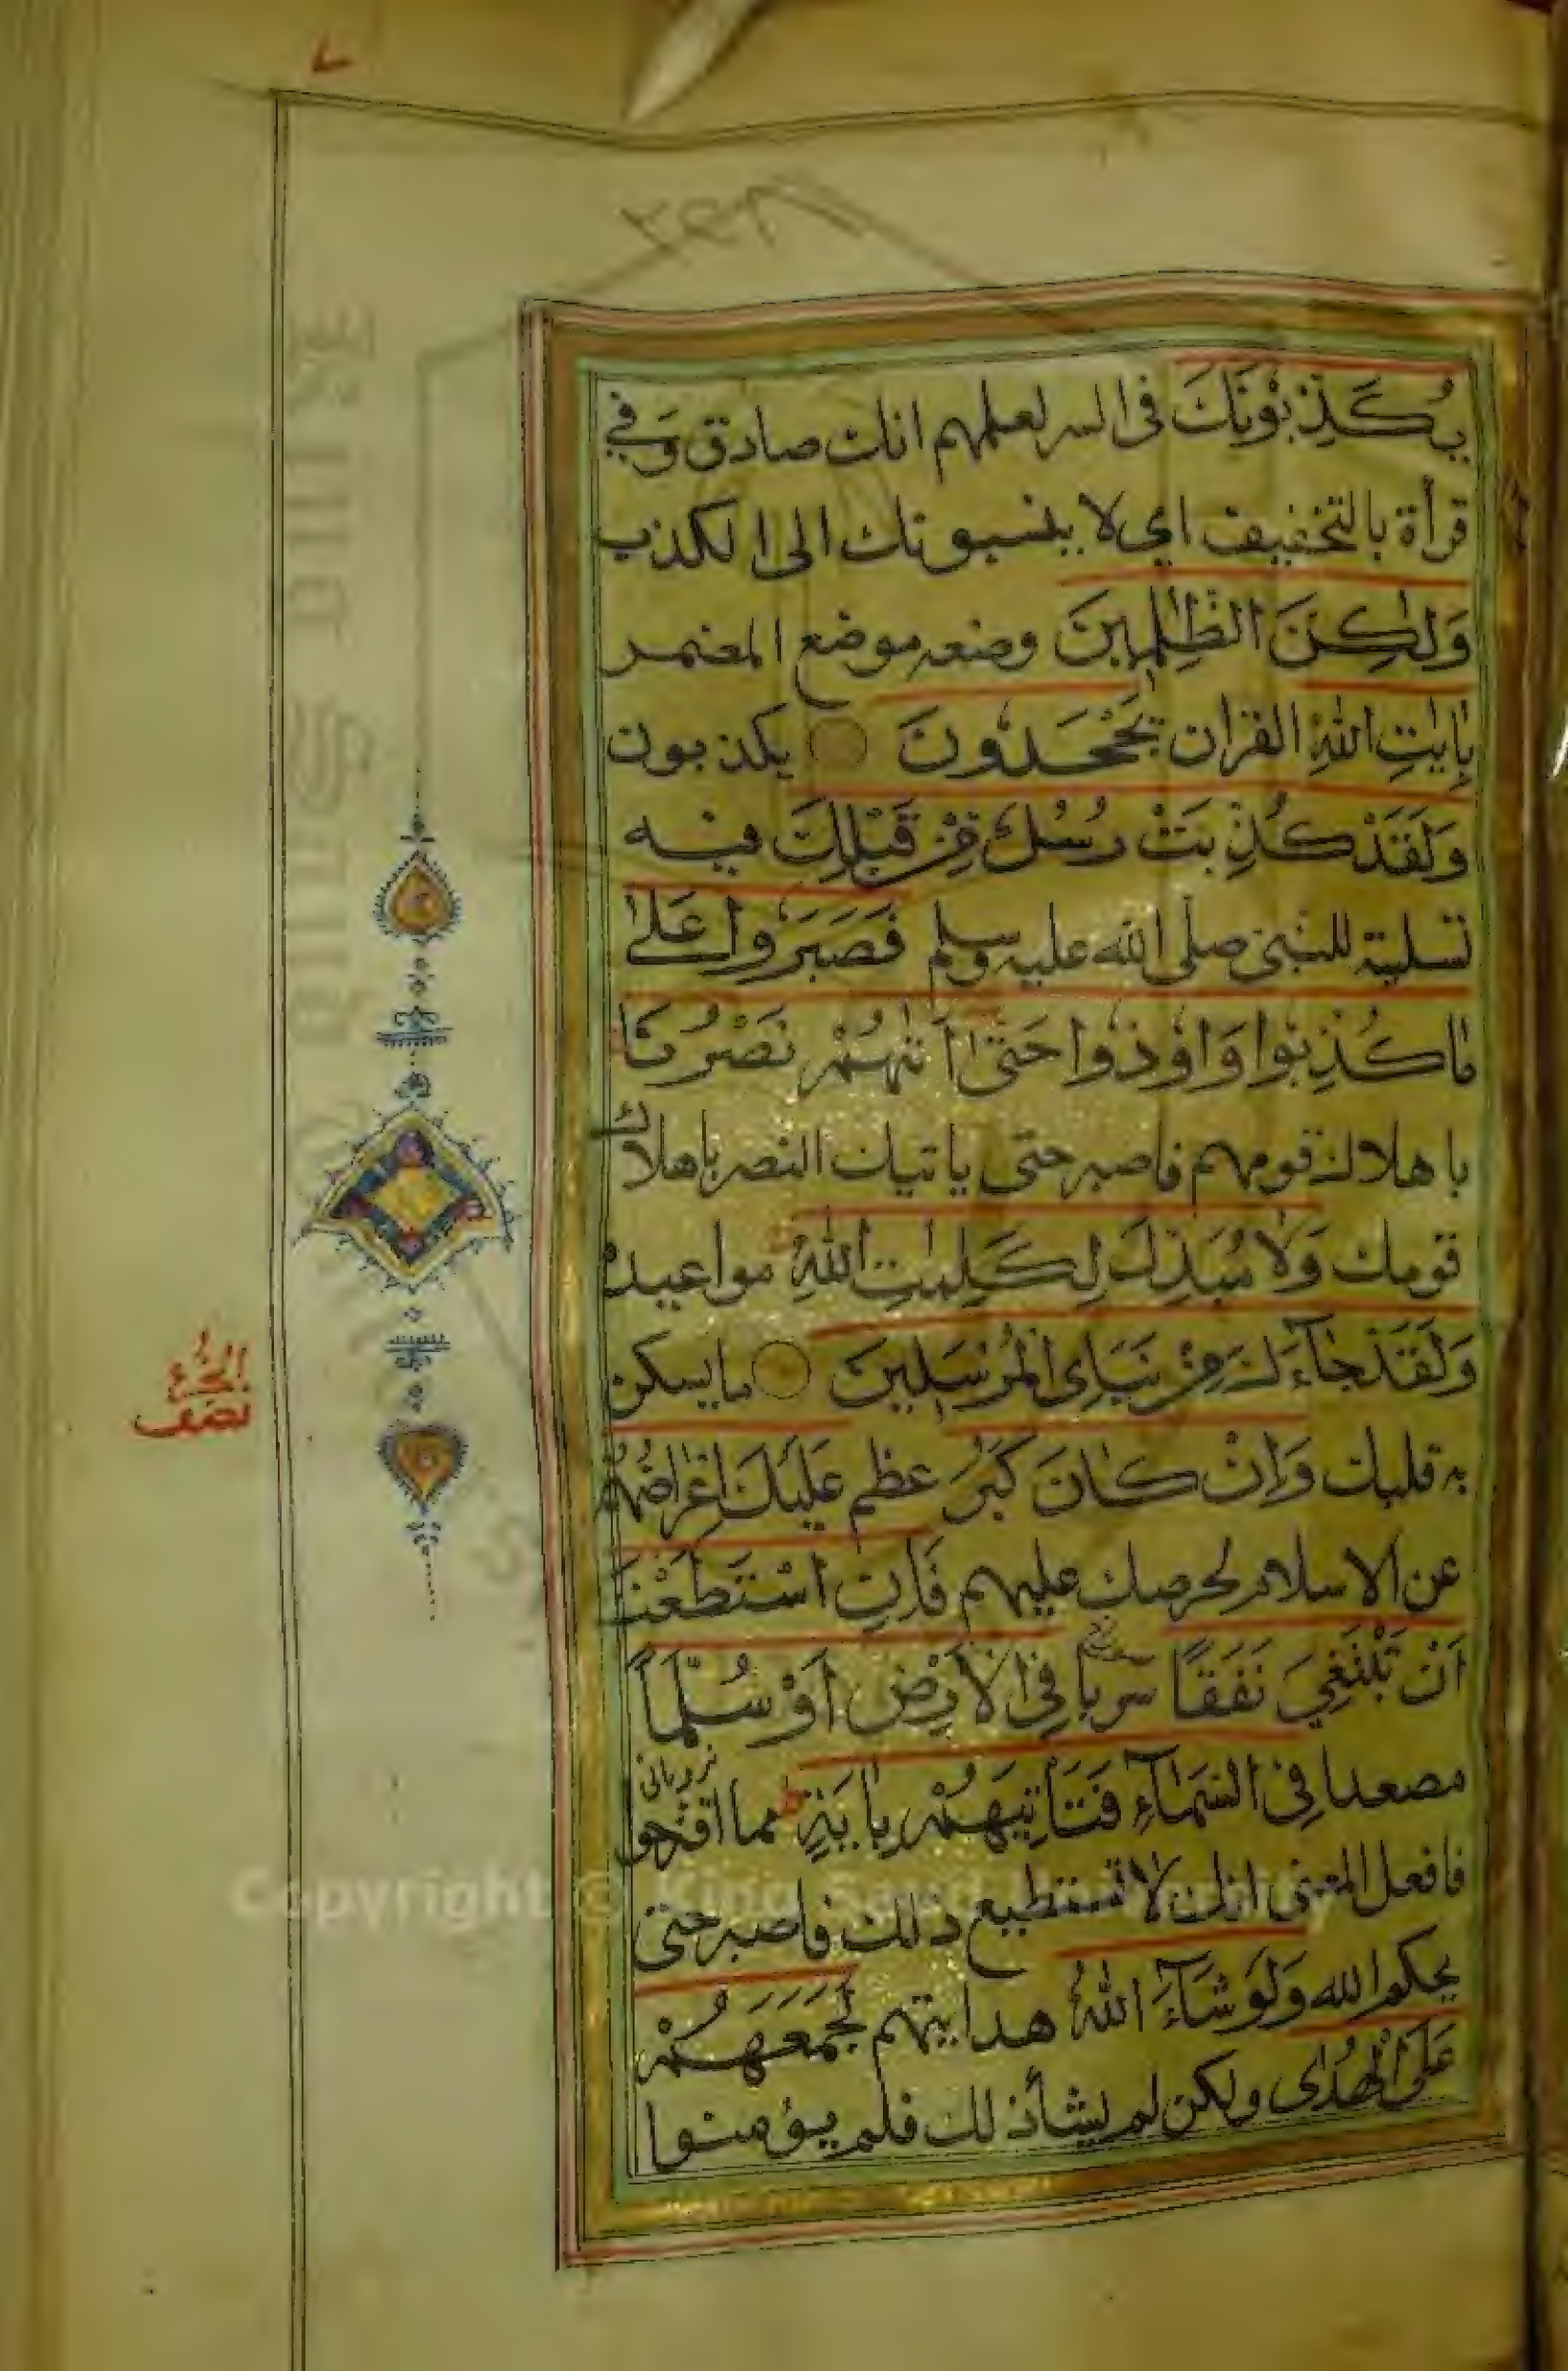 يُكَذِّبُوْنَكَ فى السر لعلمهم انك صادق وَفي
قرأة بالتخفيف اي لا ينسبونك الى الكذب
وَلٰكِنَّ الظّٰلِمِيْنَ وضعه موضع المضمر
بِاٰيٰتِ اللّٰهِ القران يَجْحَدُوْنَ يكذبون
وَلَقَدْ كُذِّبَتْ رُسُلٌ مِّنْ قَبْلِكَ فيه
تسلية للنبى صلى الله عليه وسلم فَصَبَرُوا عَلٰى
مَا كُذِّبُوْا وَاُوْذُوْا حَتّٰى اَتٰىهُمْ نَصْرُنَا
باهلاك قومهم فاصبر حتى ياتيك النصر باهلاك
قومك وَلَا مُبَدِّلَ لِكَلِمٰتِ اللّٰهِ مواعيده
وَلَقَدْ جَآءَكَ مِنْ نَبَاِى الْمُرْسَلِيْنَ ما يسكن
به قلبك وَاِنْ كَانَ كَبُرَ عظم عَلَيْكَ اِعْرَاضُهُمْ
عن الاسلام لحرصك عليهم فَاِنِ اسْتَطَعْتَ
اَنْ تَبْتَغِيَ نَفَقًا سربا فِي الْاَرْضِ اَوْ سُلَّمًا
نردبانى
مصعدا فِى السَّمَآءِ فَتَأْتِيَهُمْ بِاٰيَةٍ مما اقترحوا
فافعل المعنى انك لا تستطيع ذلك فاصبر حتى
يحكم الله وَلَوْ شَآءَ اللّٰهُ هدايتهم لَجَمَعَهُمْ
عَلَى الْهُدٰى ولكن لم يشأ ذلك فلم يؤمنوا
الجزء
نصف
Copyright © King Saud University